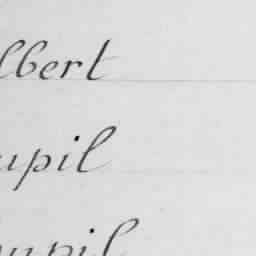 lbert
upil
upil